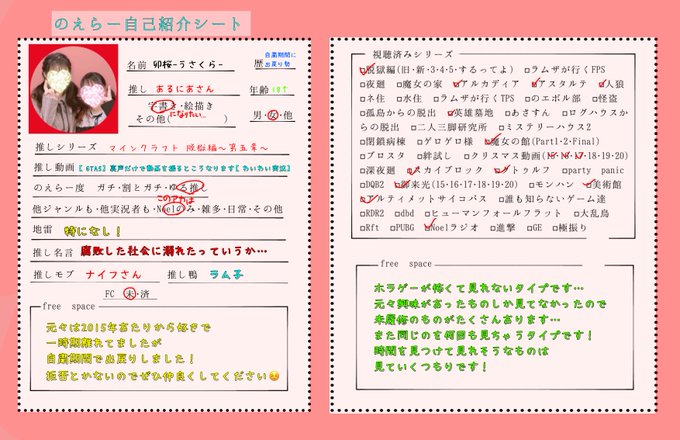 のえらー自己紹介シート
名前 卯桜-うさくら- 歴 自粛期間に出戻り勢
推し あるにあさん 年齢 18↑
字書き・絵描き
その他( になりたい… ) 男・女・他
推しシリーズ マインクラフト 脱獄編〜第五章〜
推し動画 【GTA5】裏声だけで動画を撮るとこうなります【わいわい実況】
のえらー度 ガチ・割とガチ・ゆる推し
このアカは
他ジャンルも・他実況者も・Noelのみ・雑多・日常・その他
地雷 特になし!
推し名言 腐敗した社会に溺れたっていうか…
推しモブ ナイフさん 推し鴨 ラム子
FC 未・済
free space
元々は2015年あたりから好きで
一時期離れてましたが
自粛期間で出戻りしました!
拒否とかないのでぜひ仲良くしてください😊
視聴済みシリーズ
□脱獄編(旧・新・3・4・5・するってよ) □ラムザが行くFPS
□夜廻 □魔女の家 □アルカディア □アスタルテ □人狼
□ネ住 □水住 □ラムザが行くTPS □のエボル部 □怪盗
□孤島からの脱出 □英雄墓地 □あさすん □ログハウスか
らの脱出 □二人三脚研究所 □ミステリーハウス2
□閉鎖病棟 □ゲロゲロ様 □魔女の館(Part1・2・Final)
□ブロスタ □絆試し □クリスマス動画(15・16・17・18・19・20)
□深夜廻 □スカイブロック □ゲトゥルフ □party panic
□DQB2 □御来光(15・16・17・18・19・20) □モンハン □美術館
□アルティメットサイコパス □誰も知らないゲーム達
□RDR2 □dbd □ヒューマンフォールフラット □大乱鳥
□Rft □PUBG □Noelラジオ □進撃 □GE □極振り
free space
ホラゲーが怖くて見れないタイプです…
元々興味があったものしか見てなかったので
未履修のものがたくさんあります…
また同じのを何回も見ちゃうタイプです!
時間を見つけて見れそうなものは
見ていくつもりです!